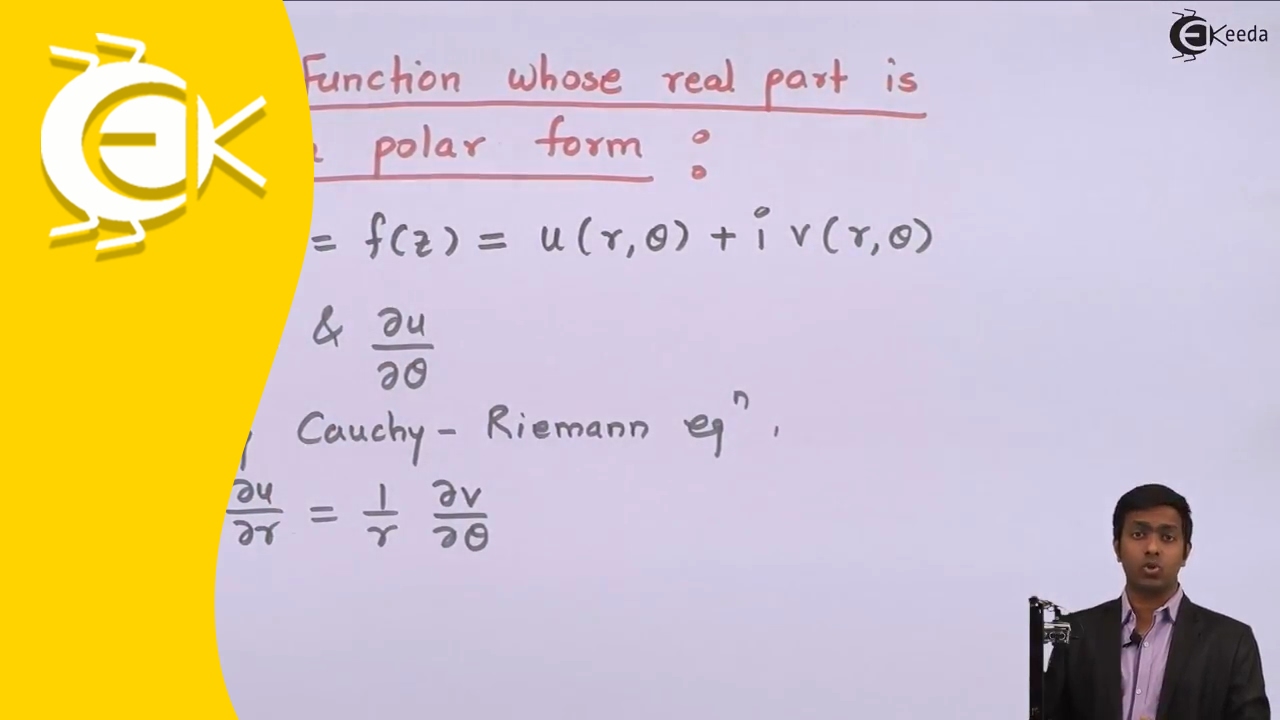 EKeeda
EK
Function whose real part is
polar form :
= f(z) = u(r,θ) + i v(r,θ)
& ∂u/∂θ
Cauchy - Riemann eqⁿ.
∂u/∂r = 1/r ∂v/∂θ